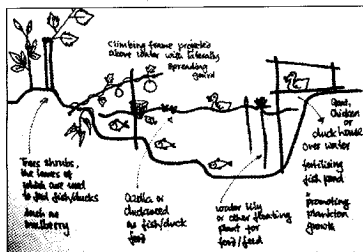 Climbing frame projects
above water with laterally
spreading gourd
Trees shrubs,
the leaves of
which are used
to feed fish/ducks
such as
mulberry
Azolla or
Duckweed
as fish/duck
feed
water lily
or other floating
plant for
food/feed
Goat,
Chicken
or
duck house
over water
fertilising
fish pond
+
promoting
plankton
growth